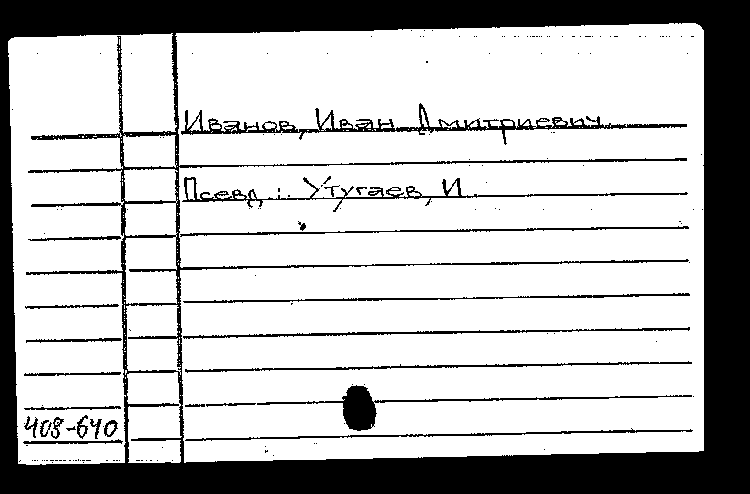 Иванов, Иван Дмитриевич.
Псевд.: Утугаев, И.
408-640